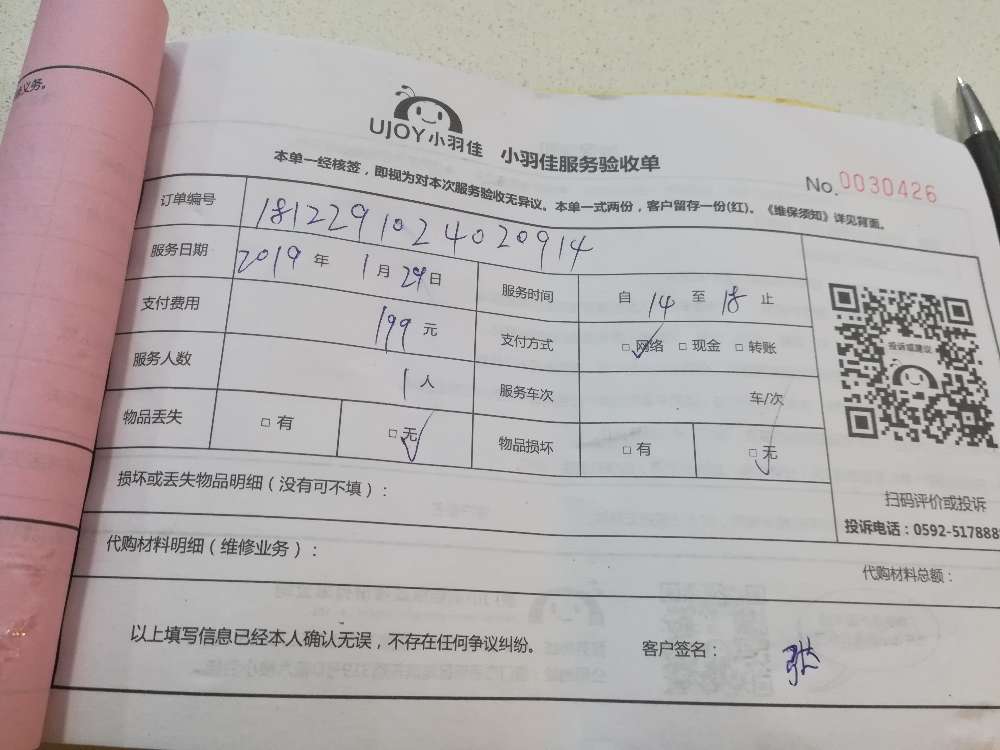 义务。
UJOY小羽佳 小羽佳服务验收单
No.0030426
本单一经核签，即视为对本次服务验收无异议。本单一式两份，客户留存一份(红)。《维保须知》详见背面。
订单编号 181229102402０914
服务日期 2019年1月29日 服务时间 自14至18止
支付费用 199元 支付方式 □网络 □现金 □转账
服务人数 1人 服务车次 车/次
物品丢失 □有 □无 物品损坏 □有 □无
投诉或建议
扫码评价或投诉
投诉电话：0592-517888
损坏或丢失物品明细（没有可不填）：
代购材料明细（维修业务）：
代购材料总额：
以上填写信息已经本人确认无误，不存在任何争议纠纷。 客户签名： 张